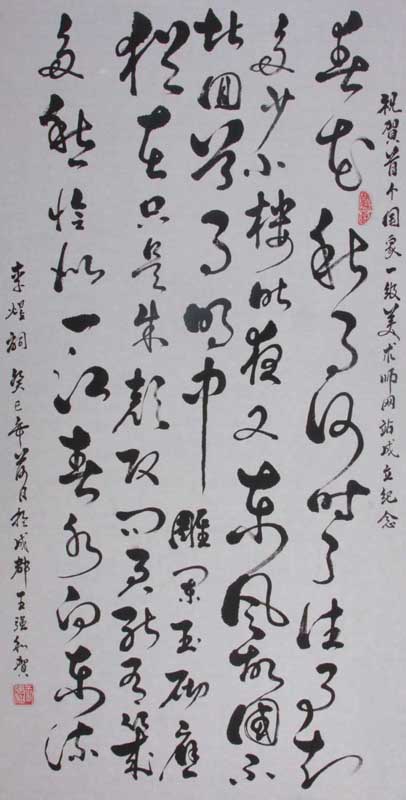 祝賀首个国家一级美术师网站成立纪念
春花秋月何时了往事知
多少小楼昨夜又东风故國不
堪回首月明中雕阑玉砌應
猶在只是朱颜改问君能有幾
多愁恰似一江春水向东流
李煜詞癸巳年荷月於成都王强和賀